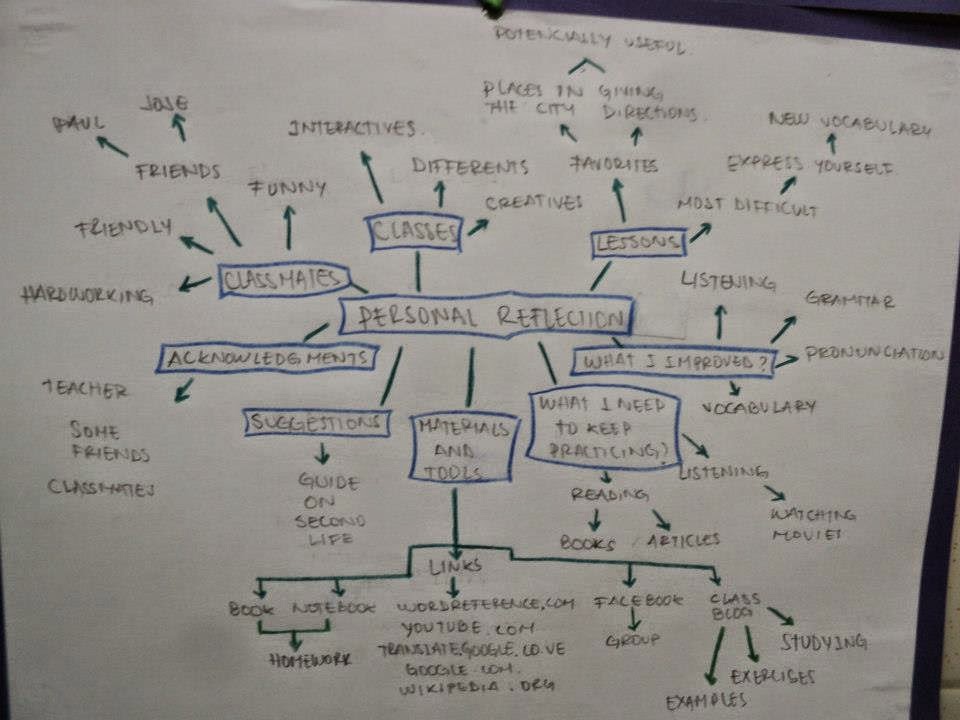 POTENCIALLY USEFUL
PLACES IN
THE CITY
GIVING
DIRECTIONS
JOSE
PAUL
INTERACTIVES.
NEW VOCABULARY
FRIENDS
FUNNY
DIFFERENTS
FAVORITES
EXPRESS YOURSELF
CREATIVES
MOST DIFFICULT
FRIENDLY
CLASSES
LESSONS
HARDWORKING
CLASSMATES
LISTENING
GRAMMAR
PERSONAL REFLECTION
ACKNOWLEDGMENTS
WHAT I IMPROVED?
PRONUNCIATION
TEACHER
SOME
FRIENDS
CLASSMATES
VOCABULARY
SUGGESTIONS
MATERIALS
AND
TOOLS
WHAT I NEED
TO KEEP
PRACTICING?
LISTENING
WATCHING
MOVIES
GUIDE
ON
SECOND
LIFE
READING
BOOKS
ARTICLES
LINKS
BOOK
NOTEBOOK
HOMEWORK
WORDREFERENCE.COM
YOUTUBE.COM
TRANSLATE.GOOGLE.CO.VE
GOOGLE.COM.
WIKIPEDIA.ORG
FACEBOOK
GROUP
CLASS
BLOG
STUDYING
EXERCISES
EXAMPLES